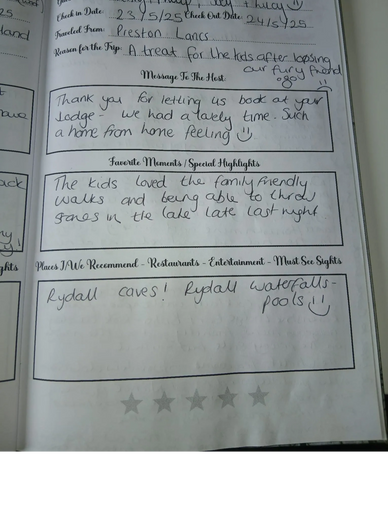 25
Check in Date: 23/5/25 Check Out Date: 24/5/25
Traveled From: Preston Lancs
Reason for the Trip: A treat for the kids after loosing
our fury friend
Message To The Host
Thank you for letting us book at your
lodge - we had a lovely time. Such
a home from home feeling
Favorite Moments / Special Highlights
The kids loved the family friendly
walks and being able to throw
stones in the lake late last night
Places I/We Recommend - Restaurants - Entertainment - Must See Sights
Rydall caves! Rydall waterfalls -
pools!!